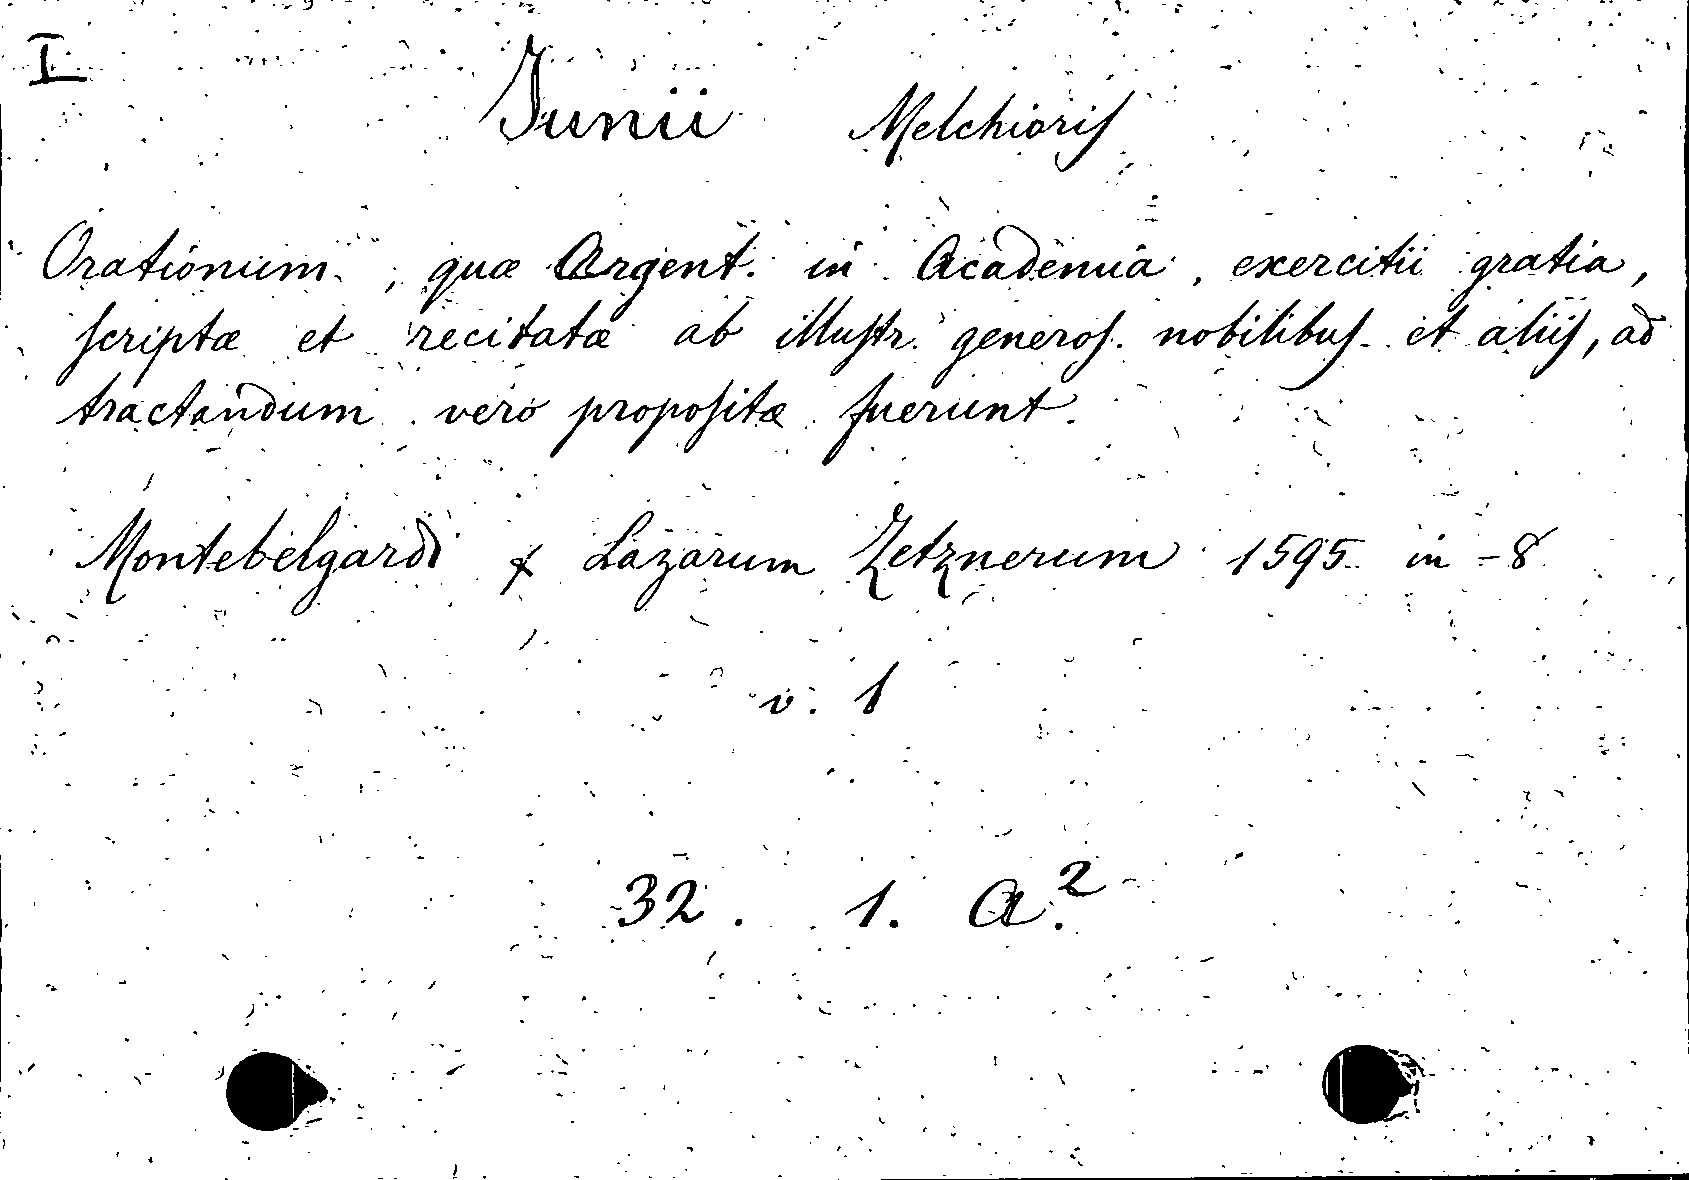 I
Junii Melchioris
Orationum, quæ Argent. in Academia, exercitii gratia,
scriptæ et recitatæ ab illustr. generos. nobilibus et aliis, ad
tractandum vero propositæ fuerunt.
Montebelgardi Lazarum Zetznerum 1595 in-8
v. 1
32. 1. A.²